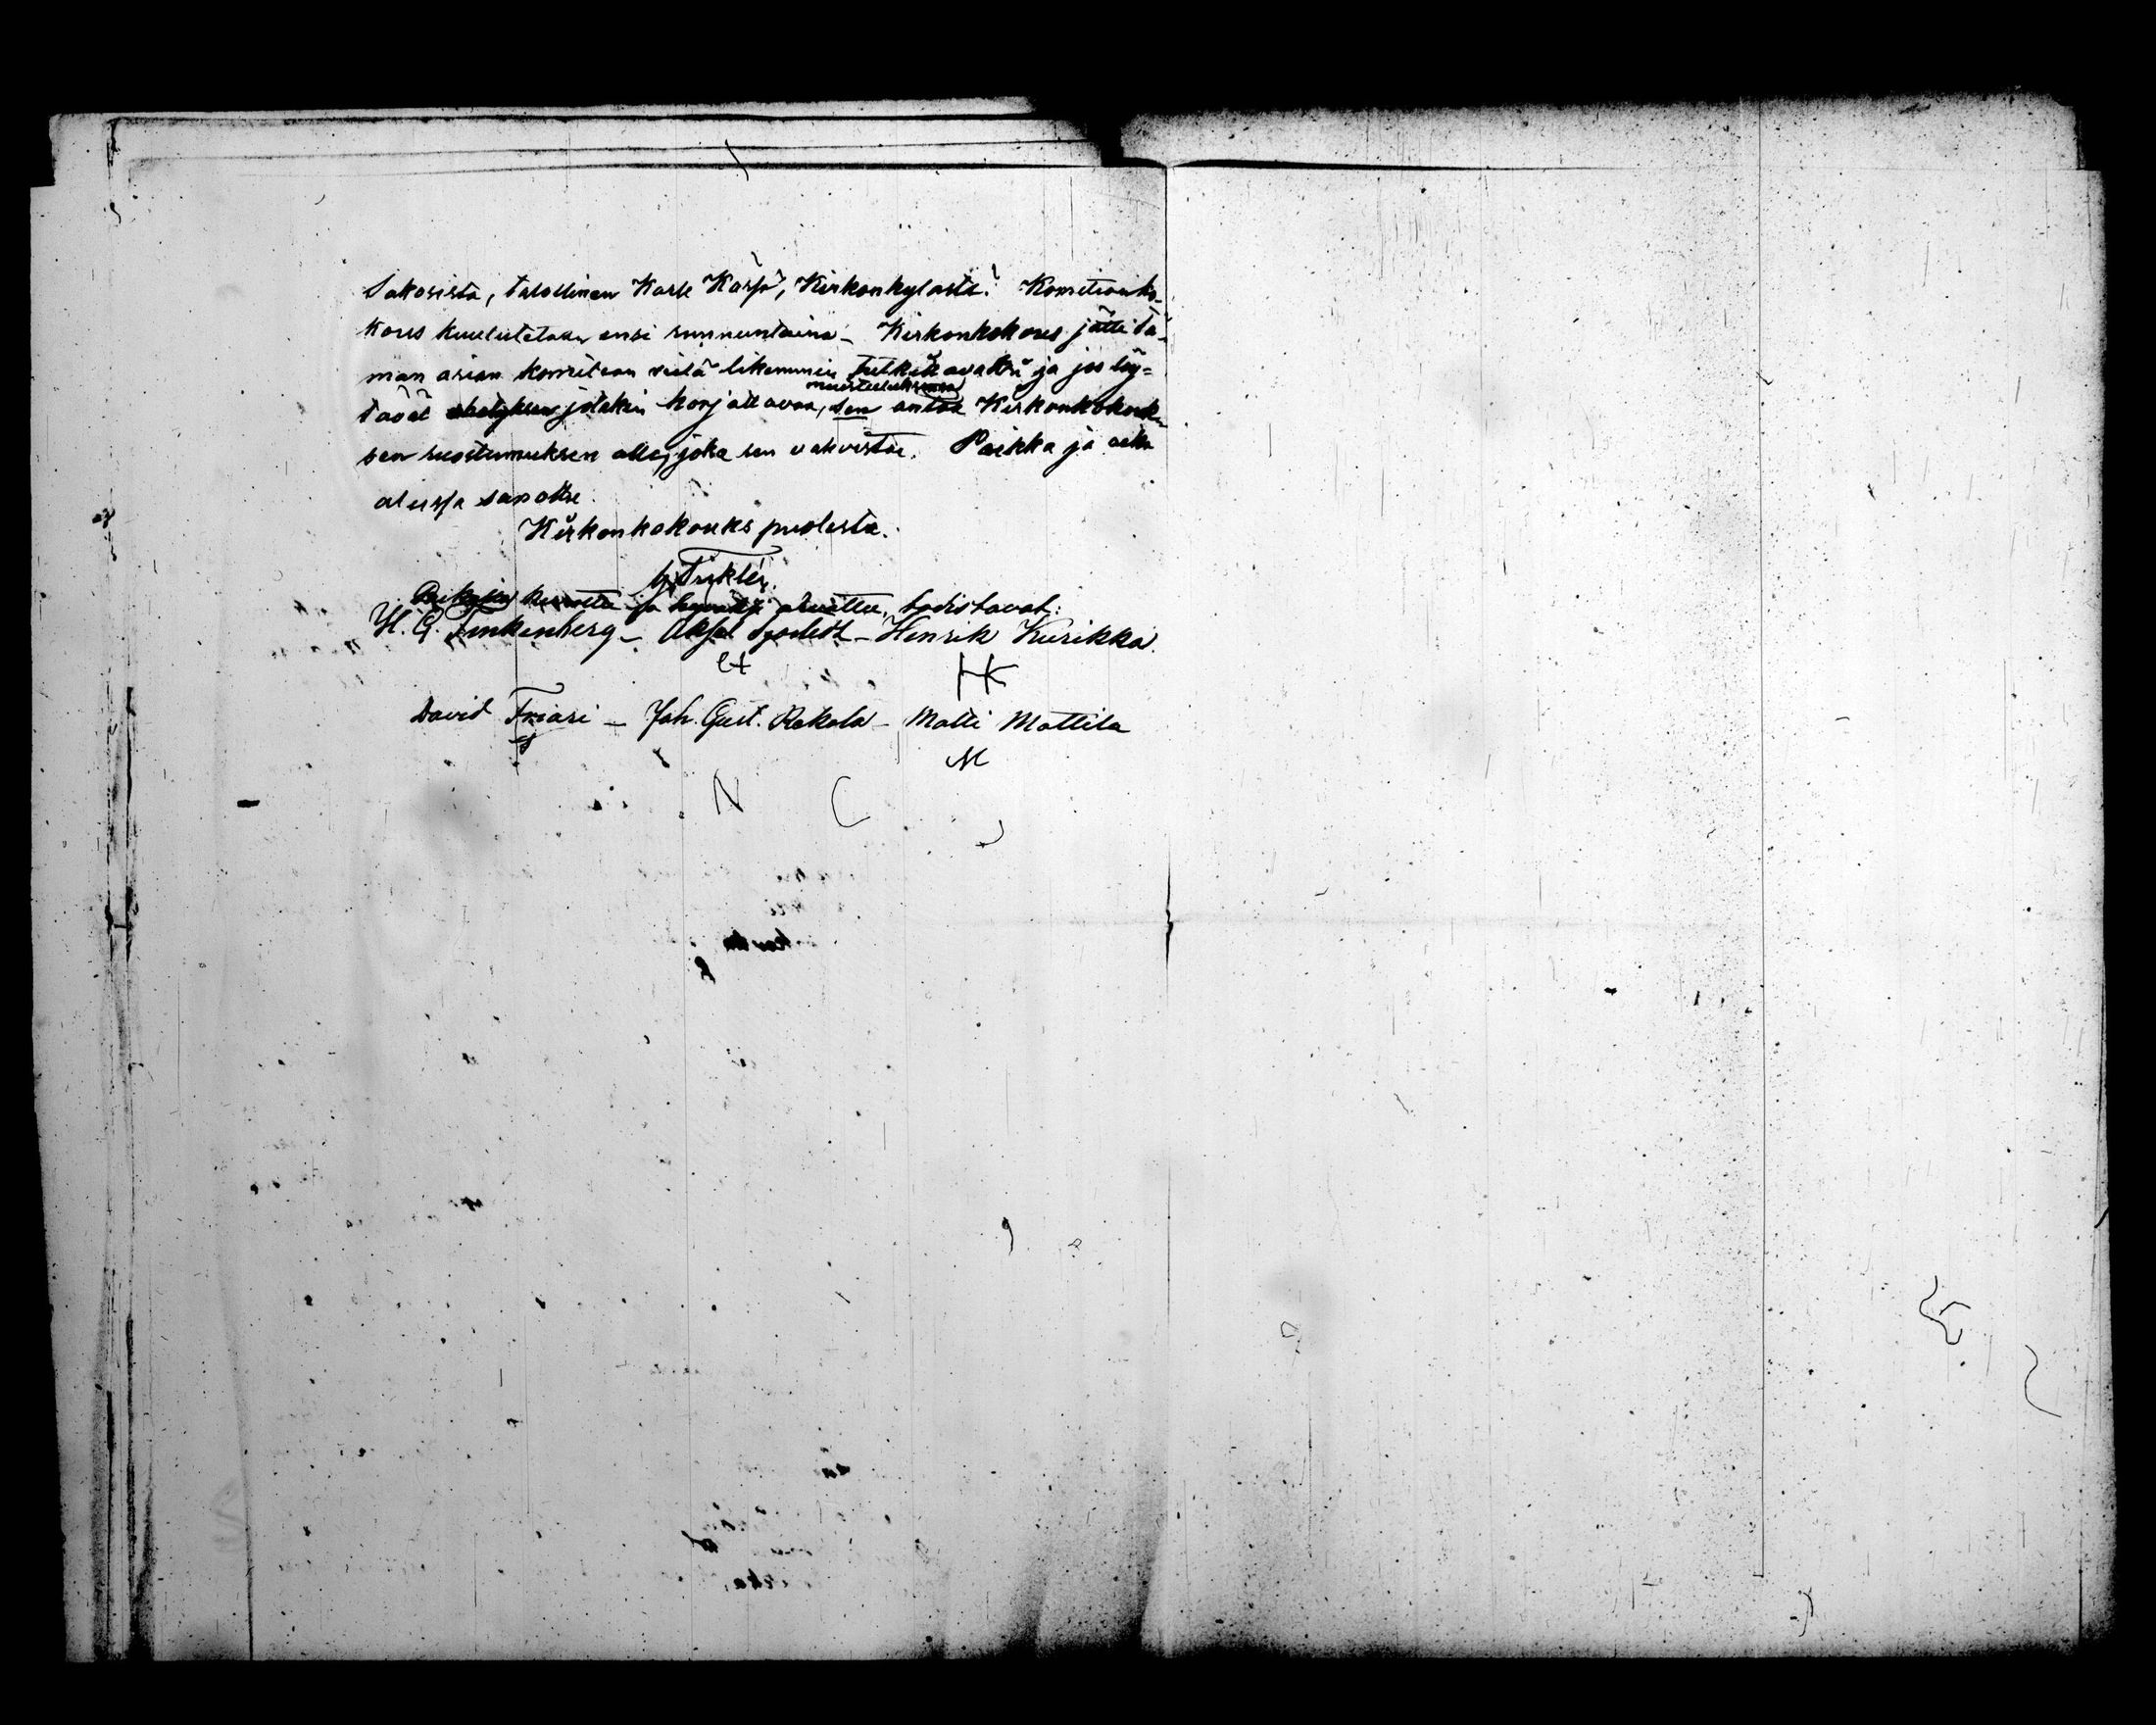 Sakosista, talollinen Karle Karja, Kirkonkylästä. Komitean ko-
kous kuulutetaan ensi sunnuntaina – Kirkonkokous jätti tä-
män asian komitean vielä likemmin tutkittavaksi ja jos löy=
muistutuksensa
tävät jotakin korjattavaa, sen antaa Kirkonkokouk-
sen suostumuksen alle, joka sen vahvistaa. Paikka ja aika
alussa sanottu.
Kirkonkokouks puolesta.
ja todistavat:
H. G. Finkenberg – Aksel – Henrik Kurikka
HK
David – Joh. Gust. Rekola – Matti Mattila
M